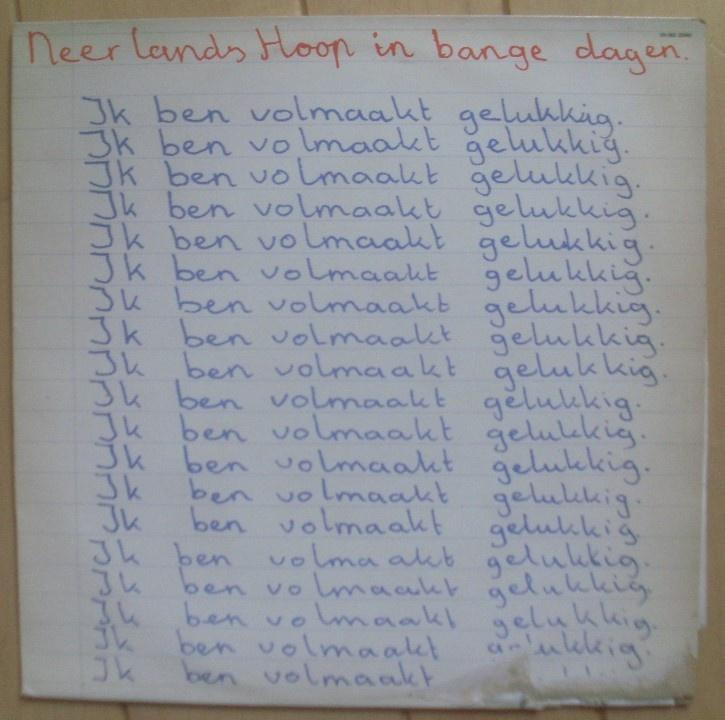 Neerlands Hoop in bange dagen.
Ik ben volmaakt gelukkig.
Ik ben volmaakt gelukkig.
Ik ben volmaakt gelukkig.
Ik ben volmaakt gelukkig.
Ik ben volmaakt gelukkig.
Ik ben volmaakt gelukkig.
Ik ben volmaakt gelukkig.
Ik ben volmaakt gelukkig.
Ik ben volmaakt gelukkig.
Ik ben volmaakt gelukkig.
Ik ben volmaakt gelukkig.
Ik ben volmaakt gelukkig.
Ik ben volmaakt gelukkig.
Ik ben volmaakt gelukkig
Ik ben volmaakt gelukkig.
Ik ben volmaakt gelukkig.
Ik ben volmaakt gelukkig.
Ik ben volmaakt gelukkig.
Ik ben volmaakt